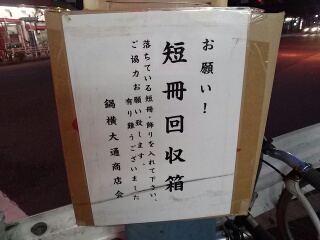 お願い！
短冊回収箱
落ちている短冊・飾りを入れて下さい。
ご協力お願い致します。
有り難うございました
鍋横大通商店会